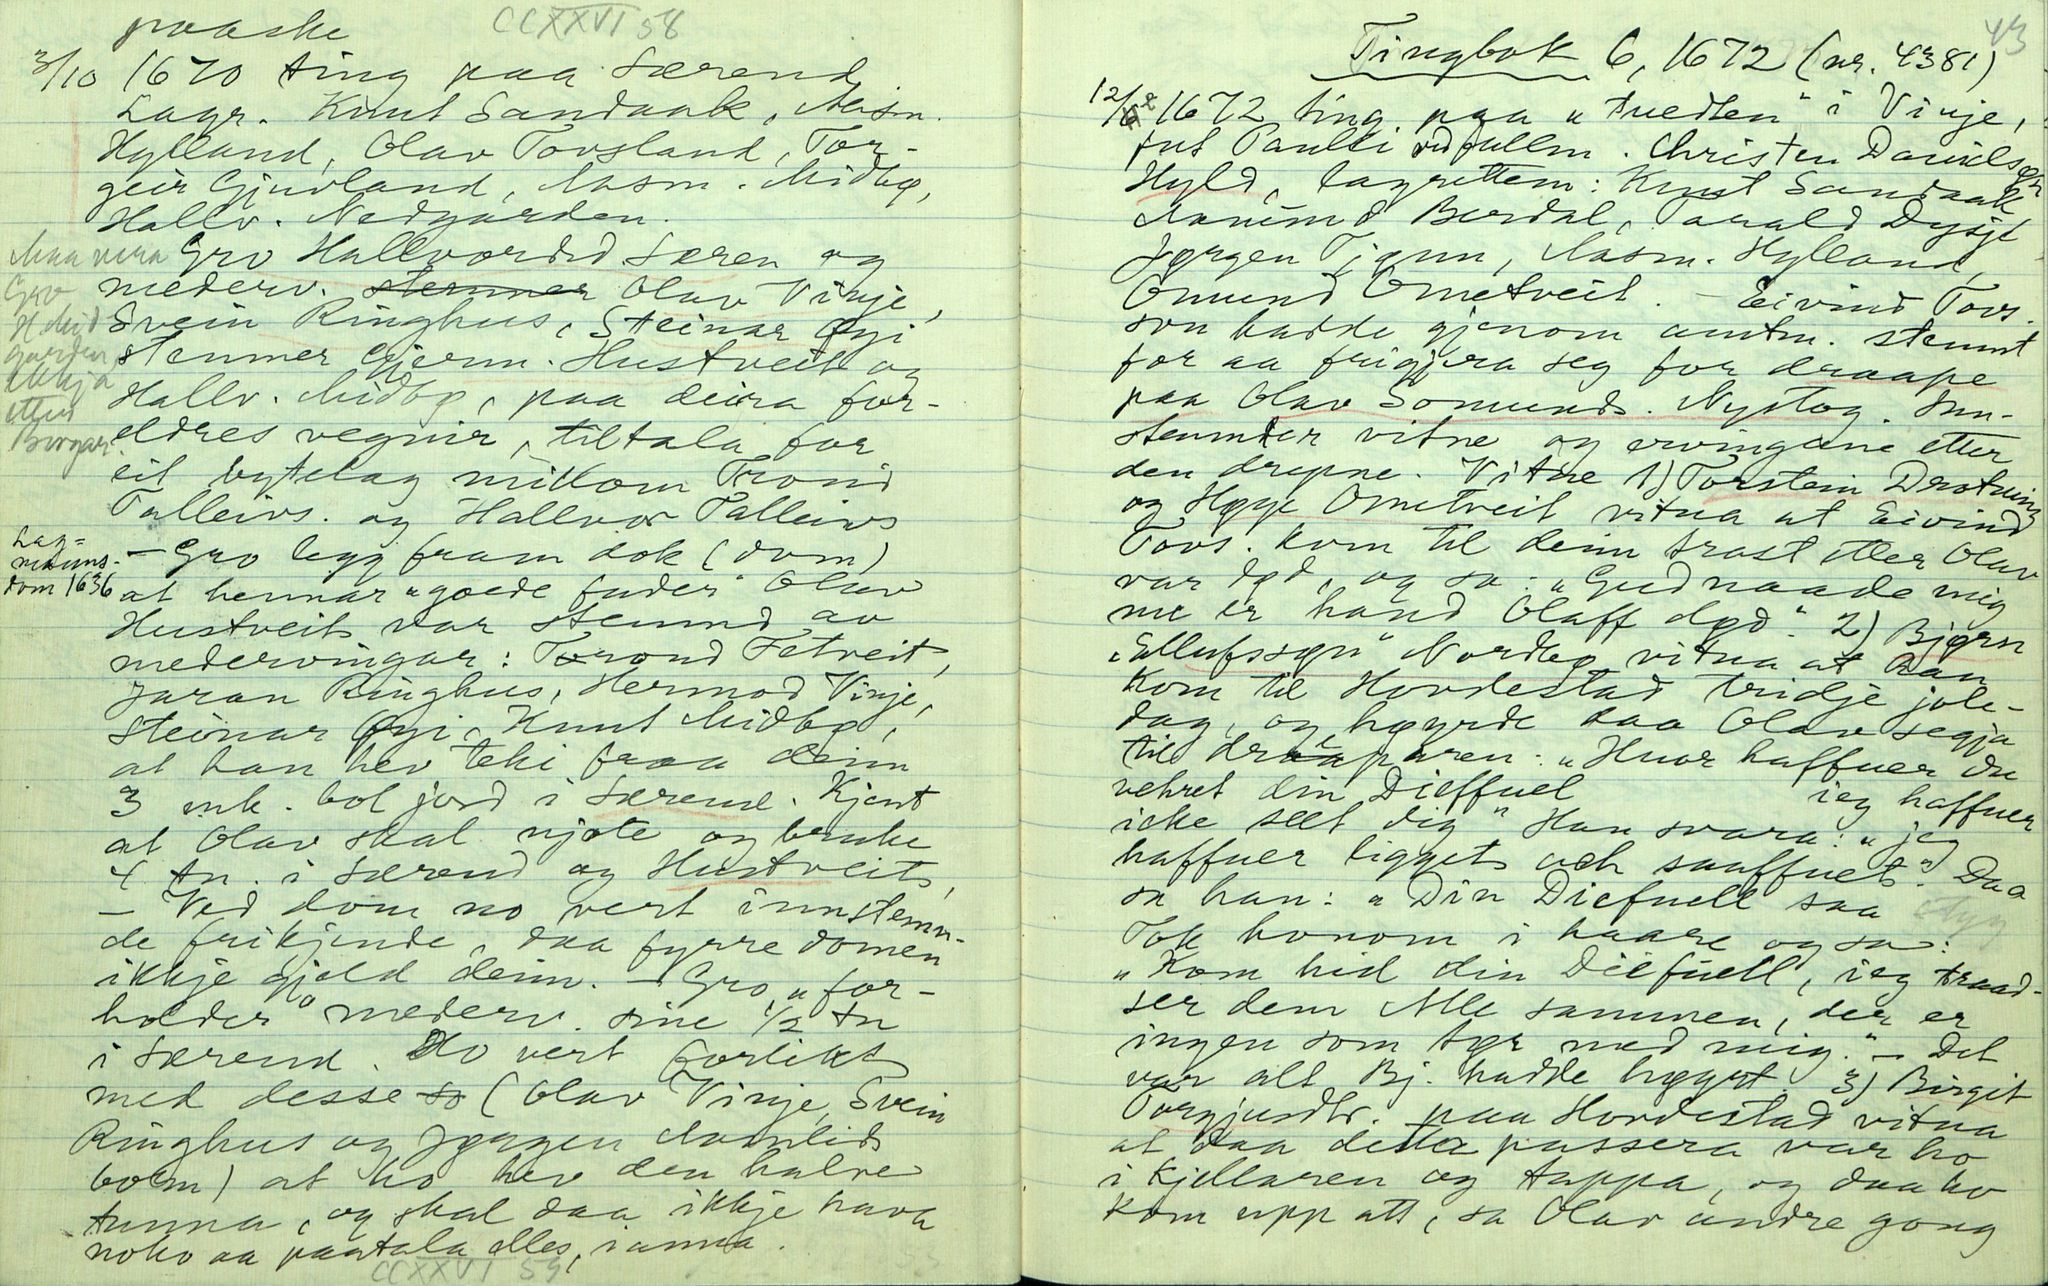 CCXXVI 58
paaske
3/10 1670 ting paa Særend
Lagr. Knut Sandaak, Aasm.
Hylland, Olav Tovsland, Tor-
geir Gjuvland, Aasm. Midbø,
Hallv. Nedgarden.
Gro Hallvordsd Særen og
mederv. stemner Olav Vinje,
Svein Ringhus, Steinar Øyi
stemner Gjerm. Hustveit og
Hallv. Midbø, paa deira for-
eldres vegnir, tiltala for
eit bytelag millom Trond
Talleivs. og Hallvor Talleivs
Maa vera
Gro
H Mid
garden
ikkja
etter
Birger.
Lag-
manns-
dom 1636
- Gro legg fram dok (dom)
at hennar "goede fader" Olav
Hustveit var stemnd av
medervingar: Torond Fetveit,
Jaran Ringhus, Hermod Vinje,
Steinar Øyi, Knut Midbø,
at han hev teki fraa deim
3 mk. bol jord i Særend. Kjent
at Olav skal njote og bruke
4 tn. i Særend og Hustveit,
- Ved dom no vert innstemn-
de frikjende, daa fyrre domen
ikkje gjeld deim. - Gro "for-
holder" mederv. sine 1/2 tn
i Særend. Ho vert forlikt
med desse so (Olav Vinje, Svein
Ringhus og Jørgen Aamlids
bolm) at ho hev den halve
tunna, og skal daa ikkje hava
noko aa paatala elles, i anna.
CCXXVI 59
43
Tingbok 6, 1672 (nr. 4381)
12/6 1672 ting paa "tuedten" i Vinje,
fut Paulli ved fullm. Christen Danielsøn
Hyld, lagrettem: Knut Sandaak
Aanund Berdal, Tarald Dysjt
Jørgen Tjønn, Aasm. Hylland,
Omund Ometveit. - Eivind Tovs.
son hadde gjenom amtm. stemnt
for aa frigjera seg for draape
paa Olav Somunds. Nystog. Inn-
stemnter vitne og ervingane etter
den drepne. Vitne 1) Torstein Drotning
og Høye Ometveit vitna at Eivind
Tovs. kom til deim trast etter Olav
var død, og sa: "Gud naade mig
nu er hand Olaff død." 2) Bjørn
"Ellufssøn" Nordbø vitna at han
kom til Hovdestad tridje jole-
dag, og høyrde daa Olav segja
til draaparen: "Huor haffuer du
vehret din Dieffuel ieg haffuer
icke seet dig" Han svara: "jeg
haffuer ligget och saaffuet". Daa
sa han: "Din Diefuell saa styg
Tok honom i haare og sa:
"Kom hid din Diefuell, ieg traad-
ser dem Alle sammen, der er
ingen som tør med mig." - Det
var alt Bj. hadde høyrt. 3) Birgit
Torgjusdtr. paa Hovdestad vitna
at daa dette passera var ho
i kjellaren og tappa, og daa ho
kom upp att, sa Olav andre gong